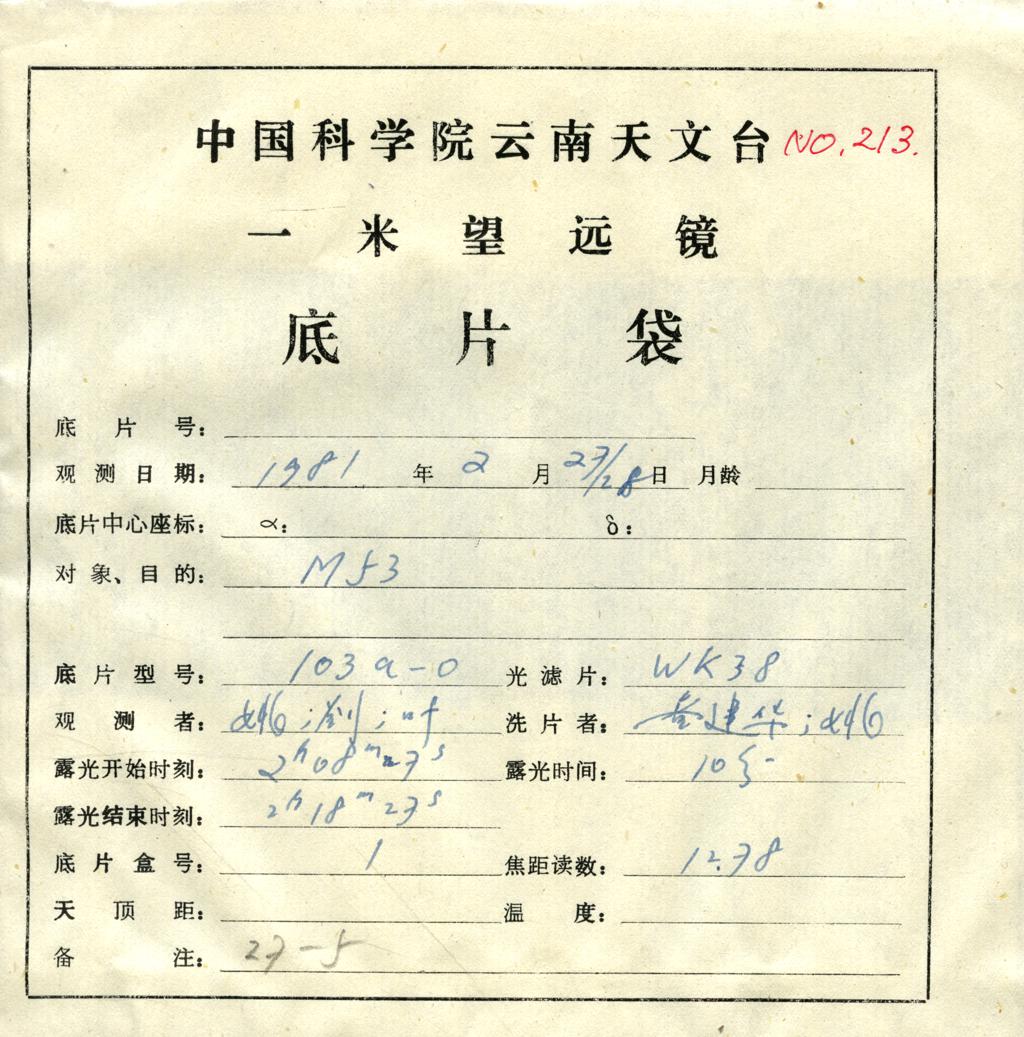 中国科学院云南天文台 NO.213.
一米望远镜
底片袋
底片号:
观测日期: 1981 年 2 月 27/28 日 月龄
底片中心座标: α: δ:
对象、目的: M53
底片型号: 103a-O 光滤片: WK38
观测者: 洗片者: 建华;
露光开始时刻: 2h08m27s 露光时间: 10分
露光结束时刻: 2h18m27s
底片盒号: 1 焦距读数: 12.78
天顶距: 温度:
备注: 27-5